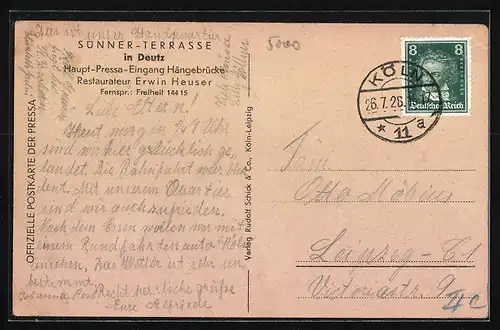 Das ist unser Handquartier
SÜNNER-TERRASSE
in Deutz
Haupt-Pressa-Eingang Hängebrücke
Restaurateur Erwin Heuser
Fernspr.: Freiheit 144 15
OFFIZIELLE POSTKARTE DER PRESSA
Liebe Eltern!
Heut morgen 1/4 9 Uhr
sind wir hier glücklich ge-
landet. Die Bahnfahrt war
Mit unserm Quartier
sind wir auch zufrieden.
Nach dem Essen wollen wir mit
einem Rundfahrtenauto Köln
ansehen. Das Wetter ist sehr un
bestimmt.
Recht herzliche Grüße
Eure Elfriede
Johanna
Verlag Rudolf Schick & Co., Köln-Leipzig
5000
8 8
Deutsches Reich
KÖLN
26.7.28.
* 11 a
Otto Möbius
Leipzig-C1
Victoriastr. 9